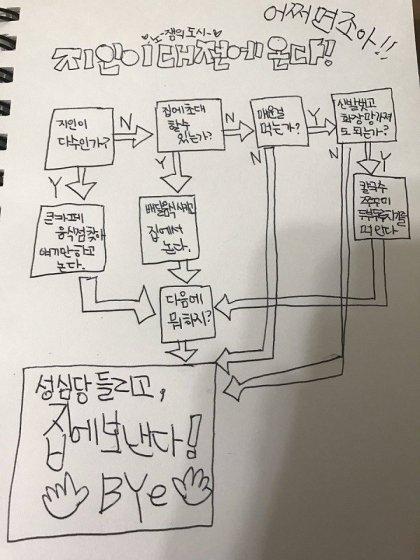 어쩌면조아!!
노-잼의도시~
지인이대전에온다!
지인이
다수인가?
N
Y
집에초대
할수
있는가?
N
Y
매운걸
먹는가?
Y
N
신발벗고
화장망가져
도되는가?
N
Y
큰카페
음식점찾아
얘기만하고
논다.
배달음식시키고
집에서
논다.
칼국수
쭈꾸미
두부두루치기를
먹인다
다음에
뭐하지?
성심당들리고,
집에보낸다!
BYe